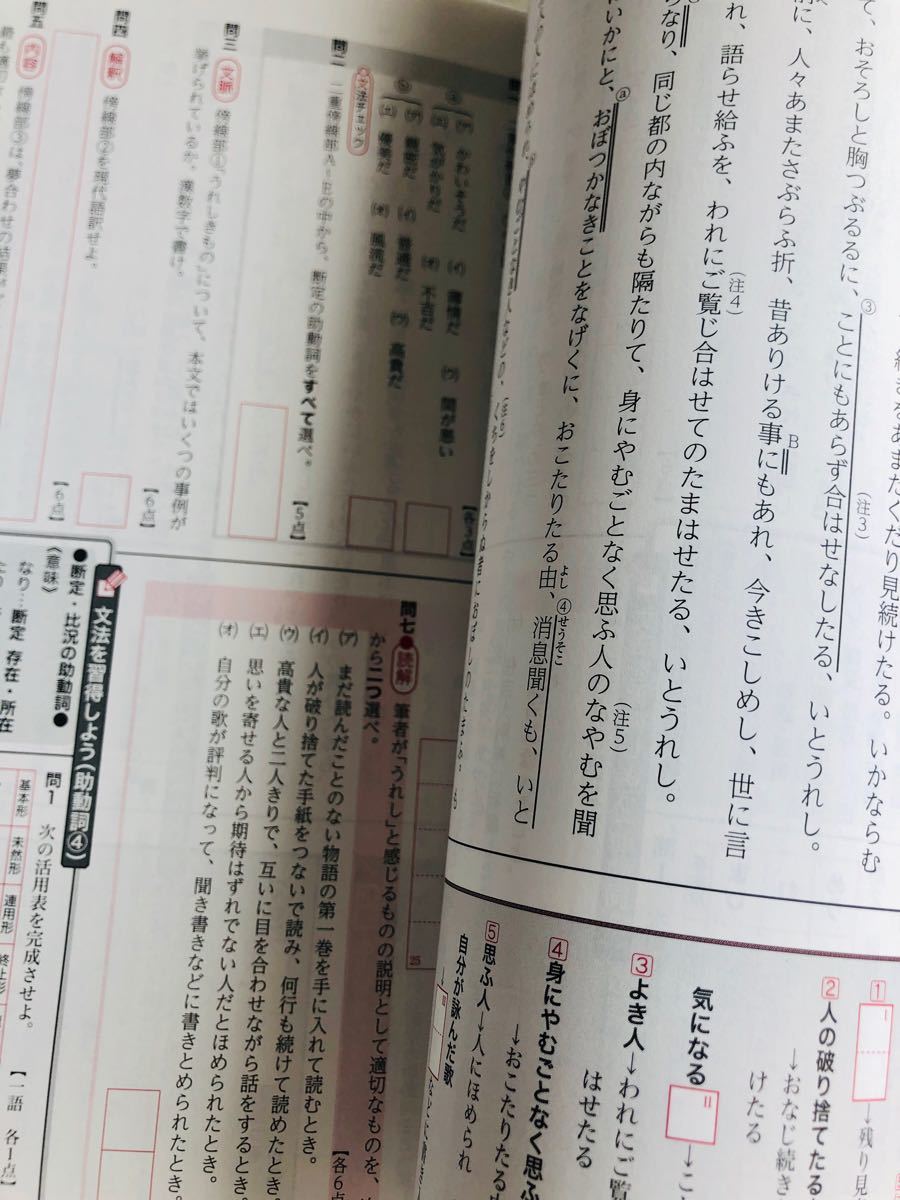 続きをあまたくだり見続けたる。いかならむ
て、おそろしと胸つぶるるに、③ことにもあらず合はせなしたる、いとうれし。
(注3)
前に、人々あまたさぶらふ折、昔ありける事にもあれ、今きこしめし、世に言
B
れ、語らせ給ふを、われにご覧じ合はせてのたまはせたる、いとうれし。
(注4)
らなり、同じ都の内ながらも隔たりて、身にやむごとなく思ふ人のなやむを聞
(注5)
いかにと、ⓐおぼつかなきことをなげくに、おこたりたる由、④消息聞くも、いと
よし
せうそこ
(注6)
1
I
→残り見
2 人の破り捨てたる
→おなじ続き
けたる
気になる II
→こ
3 よき人→われにご覧
はせたる
4 身にやむごとなく思ふ
→おこたりたる由
5 思ふ人→人にほめられ
自分が詠んだ歌
III
ⓐ
(ア) かわいそうだ (イ) 薄情だ (ウ) 間が悪い
(エ) 気がかりだ (オ) 不吉だ
(ア) 親密だ (イ) 普通だ (ウ) 高貴だ
(エ) 優美だ (オ) 風流だ
問二 文法チェック 二重傍線部A～Eの中から、断定の助動詞をすべて選べ。
【5点】
問三 文脈 傍線部①「うれしきもの」について、本文ではいくつの事例が
挙げられているか。漢数字で書け。
【6点】
問四 解釈 傍線部②を現代語訳せよ。
【6点】
問五 内容 傍線部③は、夢合わせの結果が
問七 読解 筆者が「うれし」と感じるものの説明として適切なものを、
から二つ選べ。
【各6点】
(ア) まだ読んだことのない物語の第一巻を手に入れて読むとき。
(イ) 人が破り捨てた手紙をつないで読み、何行も続けて読めたとき。
(ウ) 高貴な人と二人きりで、互いに目を合わせながら話をするとき。
(エ) 思いを寄せる人から期待はずれでない人だとほめられたとき。
(オ) 自分の歌が評判になって、聞き書きなどに書きとめられたとき。
25
文法を習得しよう(助動詞④)
●断定・比況の助動詞●
〈意味〉
なり…断定 存在・所在
問1 次の活用表を完成させよ。
【一語 各1点】
基本形
未然形
連用形
終止形